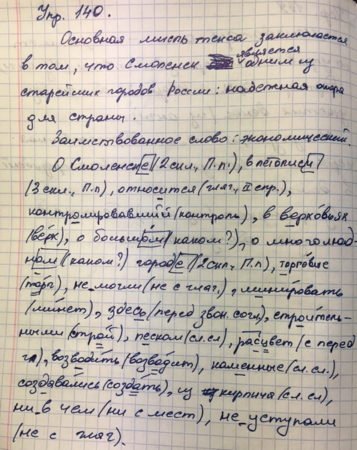 Упр. 140.
Основная мысль текса заключается
в том, что Смоленск является одним из
старейших городов России: надежная опора
для страны.
Заимствованное слово: экономический.
О Смоленске (2 скл., П.п.), в летописи
(3 скл., П.п), относится (глаг., II спр.),
контролировавший (контроль), в верховьях
(верх), о большом (каком?), о многолюд-
ном (каком?) городе (2 скл., П.п), торговые
(торг), не могли (не с глаг.), минировать
(минёт), здесь (перед звон. согл), строитель-
ными (строй), песком (сл.сл), расцвет (с перед
гл), возводить (возводит), каменные (сл.сл.),
создавались (создать), из кирпича (сл.сл),
ни в чем (ни с мест), не уступали
(не с глаг).